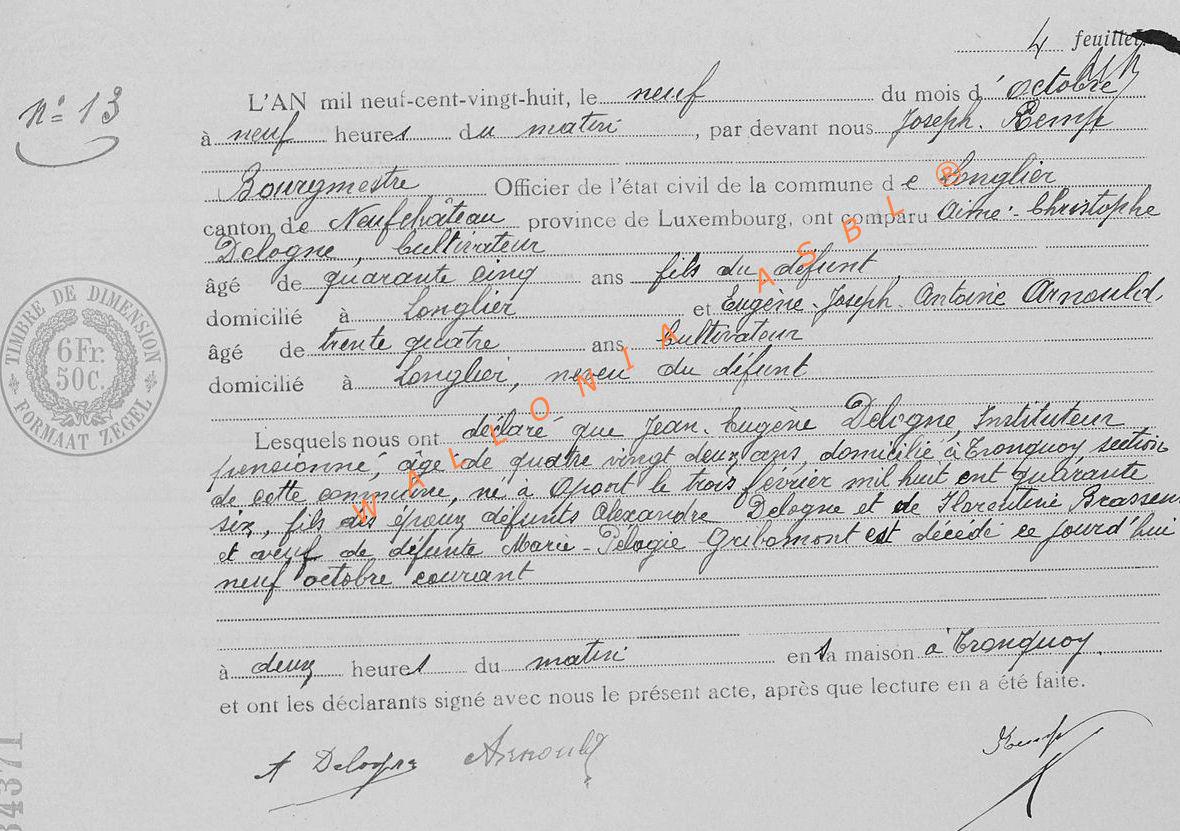 4 feuillet
n° 13
L'AN mil neuf-cent-vingt-huit, le neuf du mois d' octobre
à neuf heures du matin, par devant nous Joseph Kemp
Bourgmestre Officier de l'état civil de la commune de Longlier
canton de Neufchâteau province de Luxembourg, ont comparu Aimé-Christophe
Delogne, cultivateur
âgé de quarante cinq ans fils du défunt,
domicilié à Longlier et Eugène-Joseph-Antoine Arnould,
âgé de trente quatre ans Cultivateur
domicilié à Longlier, neveu du défunt
Lesquels nous ont déclaré que Jean-Eugène Delogne, Instituteur
pensionné, âgé de quatre vingt deux ans, domicilié à Tronquoy, section
de cette commune, né à Opont le trois février mil huit cent quarante
six, fils des époux défunts Alexandre Delogne et de Florentine Brasseur
et veuf de défunte Marie-Pélagie Gribomont est décédé ce jourd'hui
neuf octobre courant
à deux heures du matin en sa maison à Tronquoy.
et ont les déclarants signé avec nous le présent acte, après que lecture en a été faite.
A Delogne Arnould Kemp
TIMBRE DE DIMENSION
6 Fr.
50C.
FORMAAT ZEGEL
34371
WALLONIA ASBL ®